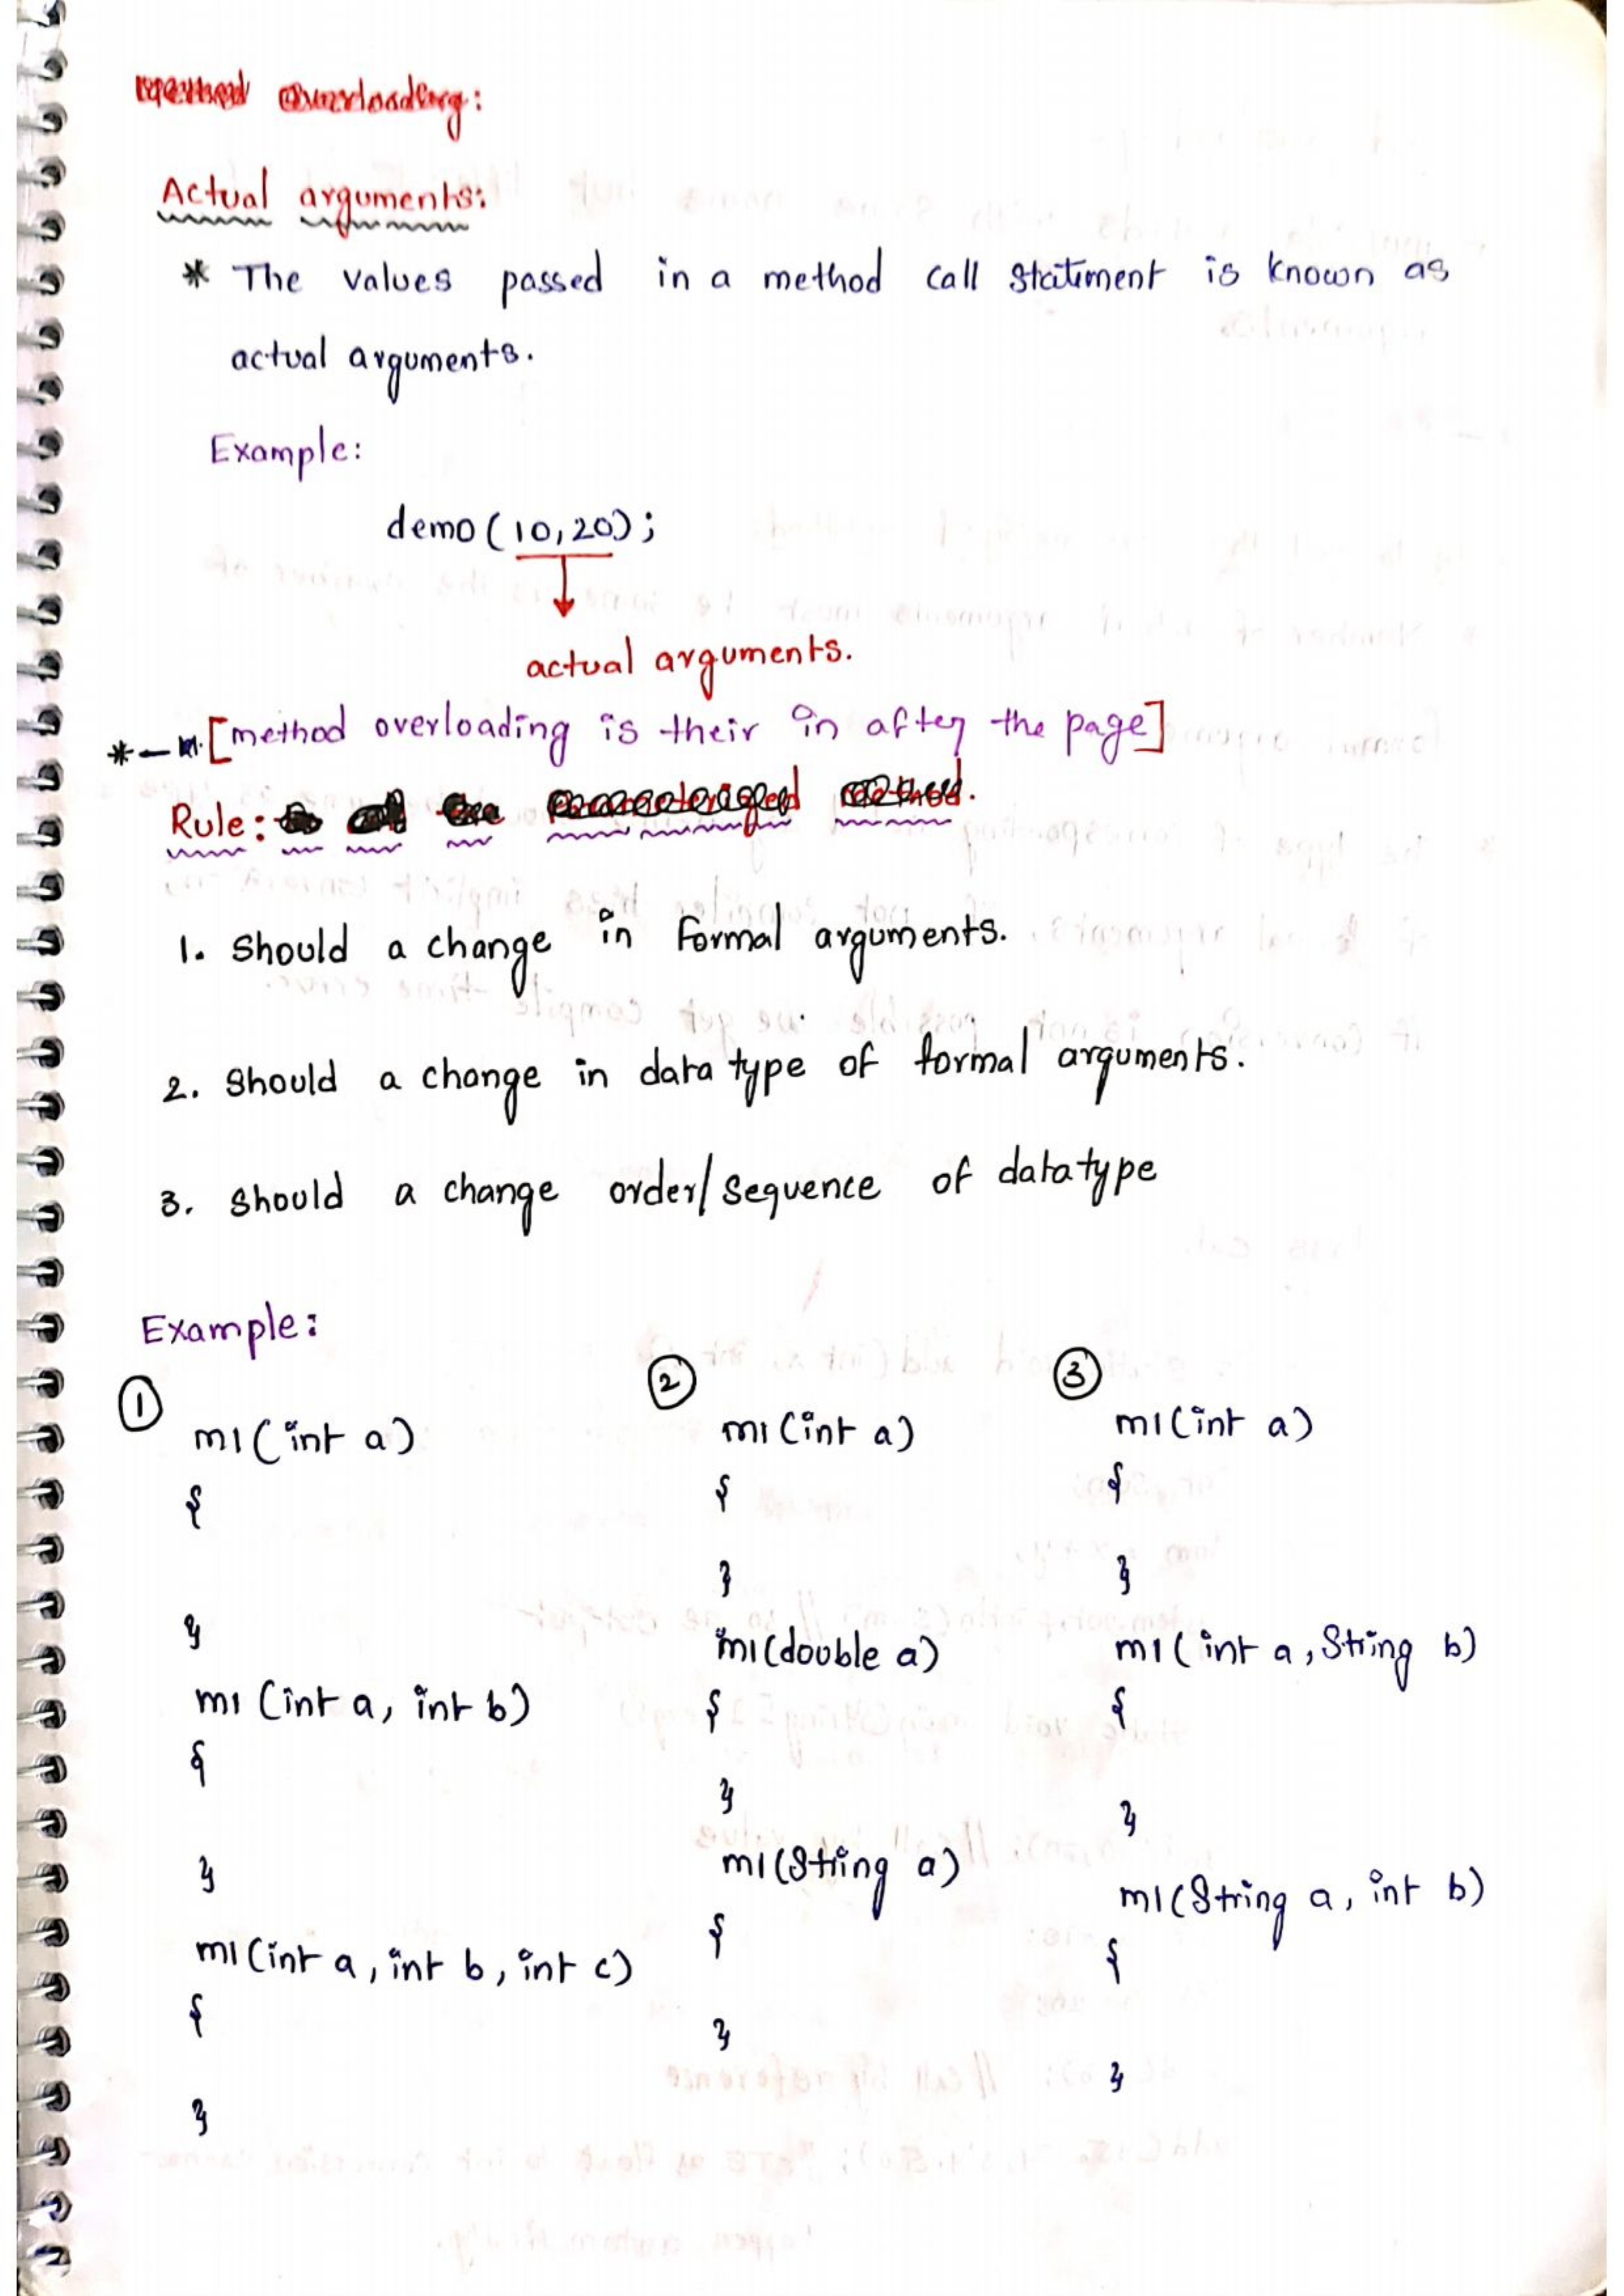 Method overloading:
Actual arguments:
* The values passed in a method call statement is known as
actual arguments.
Example:
demo(10,20);
actual arguments.
*— [method overloading is their in after the page]
Rule: to call the parameterized method.
1. Should a change in formal arguments.
2. Should a change in data type of formal arguments.
3. Should a change order/sequence of datatype
Example:
①
m1(int a)
{
}
m1(int a, int b)
{
}
m1(int a, int b, int c)
{
}
②
m1(int a)
{
}
m1(double a)
{
}
m1(String a)
{
}
③
m1(int a)
{
}
m1(int a, String b)
{
}
m1(String a, int b)
{
}